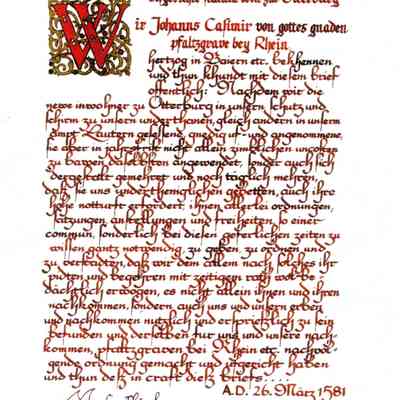 Wir Johanns Casimir von gottes gnaden
pfaltzgrave bey Rhein
hertzog in Baiern etc. bekhennen
und thun khundt mit diesem brief
öffentlich: Nachdem wir die
newe inwohner zu Otterburg in unsern schutz und
schirm zu unsern underthanen, gleich andern in unserm
ampt Lautern gesessend, gnedig uf- und angenommene,
sie aber in jahrsfrist nicht allein zimblichen uncosten
zu bawen daselbsten angewendet, sonder auch sich
dergestalt gemehret und noch täglich mehren,
daß sie uns underthenigliche gebetten, auch ihre
hohe notturft erfordert, ihnen allerlei ordnungen,
satzungen, anstellungen und freiheiten, so einer
commun, sonderlich bei diesen gefehrlichen zeiten zu
wissen gantz notwendig, zu geben, zu ordnen und
zu verstadten, daß wir dem allem nach solches ihr
pidten und begehren mit zeitigem rath wol be-
dächtlich erwogen, es nicht allein ihnen und ihren
nachkommen, sondern auch uns und unsern erben
und nachkommen nützlich und ersprießlich zu sein
befunden und derselben für uns und unsere nach-
kommen, pfaltzgraven bei Rhein etc. nachvol-
gende ordnung gemacht und ufgericht haben
und thun deß in craft dieß briefs ....
A.D. 26. März 1581